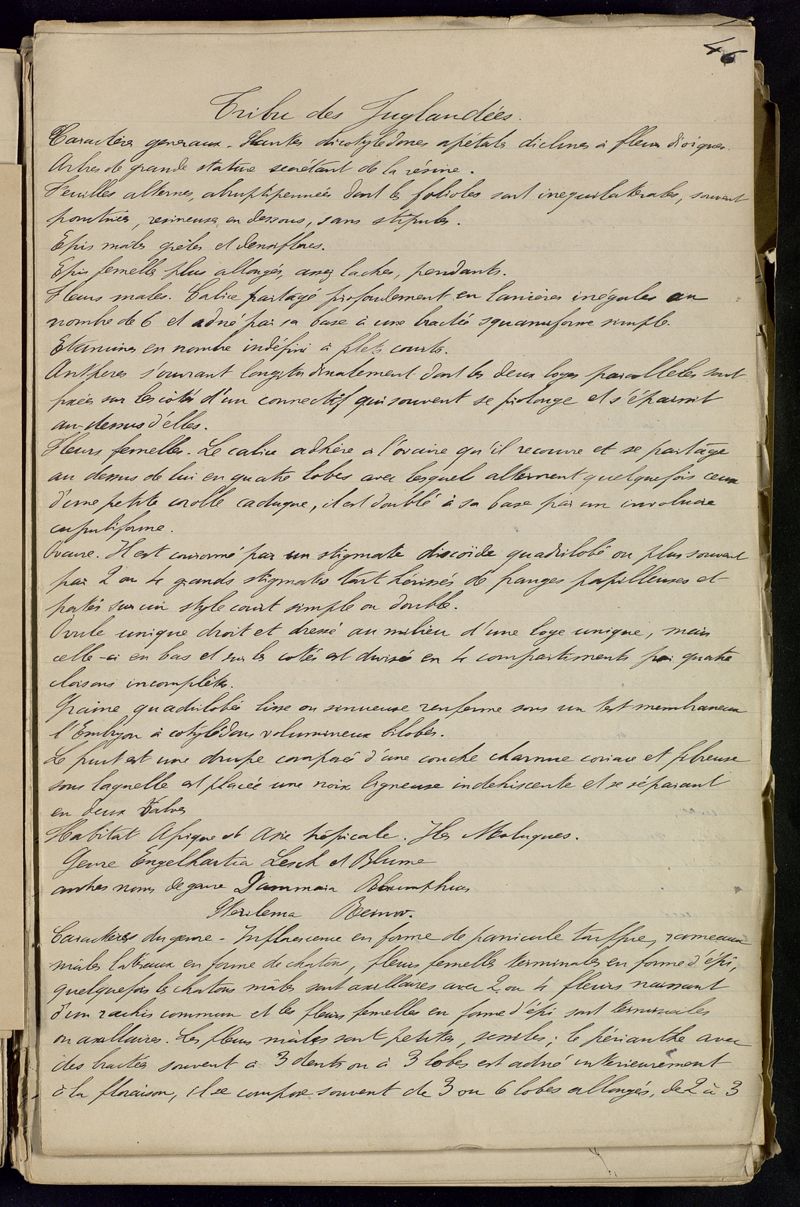 46
Tribu des Juglandées.
Caractères generaux. Plantes dicotylédones apétales diclines à fleurs dioiques.
Arbres de grande stature secrétant de la résine.
Feuilles alternes, abruptipennées dont les folioles sont inequilaterales, souvent
ponctuées, resineuses en dessous, sans stipules.
Epis males grêles et densiflores.
Epis femelles plus allongés, assez laches, pendants.
Fleurs males. Calice partagé profondement en lanières inégales au
nombre de 6 et adné par sa base à une bractée squamiforme simple.
Etamines en nombre indéfini à filets courts.
Anthères s'ouvrant longitudinalement dont les deux loges parallèles sont
fixées sur les côtés d'un connectif qui souvent se prolonge et s'épanouit
au-dessus d'elles.
Fleurs femelles. Le calice adhère à l'ovaire qu'il recouvre et se partage
au dessus de lui en quatre lobes avec lesquels alternent quelquefois ceux
d'une petite corolle caduque, il est doublé à sa base par un involucre
cupuliforme.
Ovaire. Il est couronné par un stigmate discoïde quadrilobé ou plus souvent
par 2 ou 4 grands stigmates tout hérissés de franges papilleuses et
portés sur un style court simple ou double.
Ovule unique droit et dressé au milieu d'une loge unique, mais
celle-ci en bas et sur les cotés est divisée en 4 compartiments par quatre
cloisons incomplètes.
Graine quadrilobée lisse ou sinueuse renferme sous un test membraneux
l'Embryon à cotylédons volumineux bilobés.
Le fruit est une drupe composé d'une couche charnue coriace et fibreuse
sous laquelle est placée une noix ligneuse indehiscente et se séparant
en deux valves
Habitat Afrique et Asie tropicale. Iles Moluques.
Genre Engelhartia Lesch et Blume
autres noms de genre Dammara Rhumphius
Pterilema Reinw.
Caractères du genre - Inflorescence en forme de panicule touffue, rameaux
mâles latéraux en forme de chatons, fleurs femelles terminales en forme d'épi,
quelquefois les chatons mâles sont axillaires avec 2 ou 4 fleurs naissant
d'un rachis commun et les fleurs femelles en forme d'épi sont terminales
ou axillaires. Les fleurs mâles sont petites, sessiles; le périanthe avec
des bractées souvent à 3 dents ou à 3 lobes est adné interieurement
à la floraison, il se compose souvent de 3 ou 6 lobes allongés, de 2 à 3